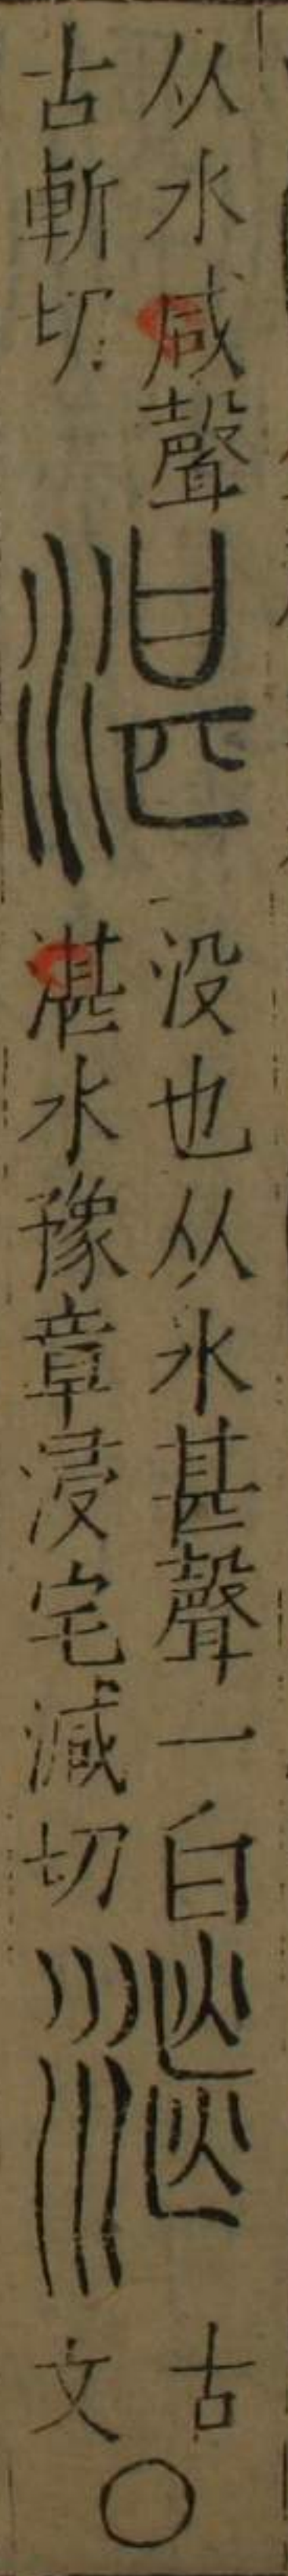 从水咸聲
古斬切
湛
没也从水甚聲一白
湛水豫章浸宅減切
古
文
○